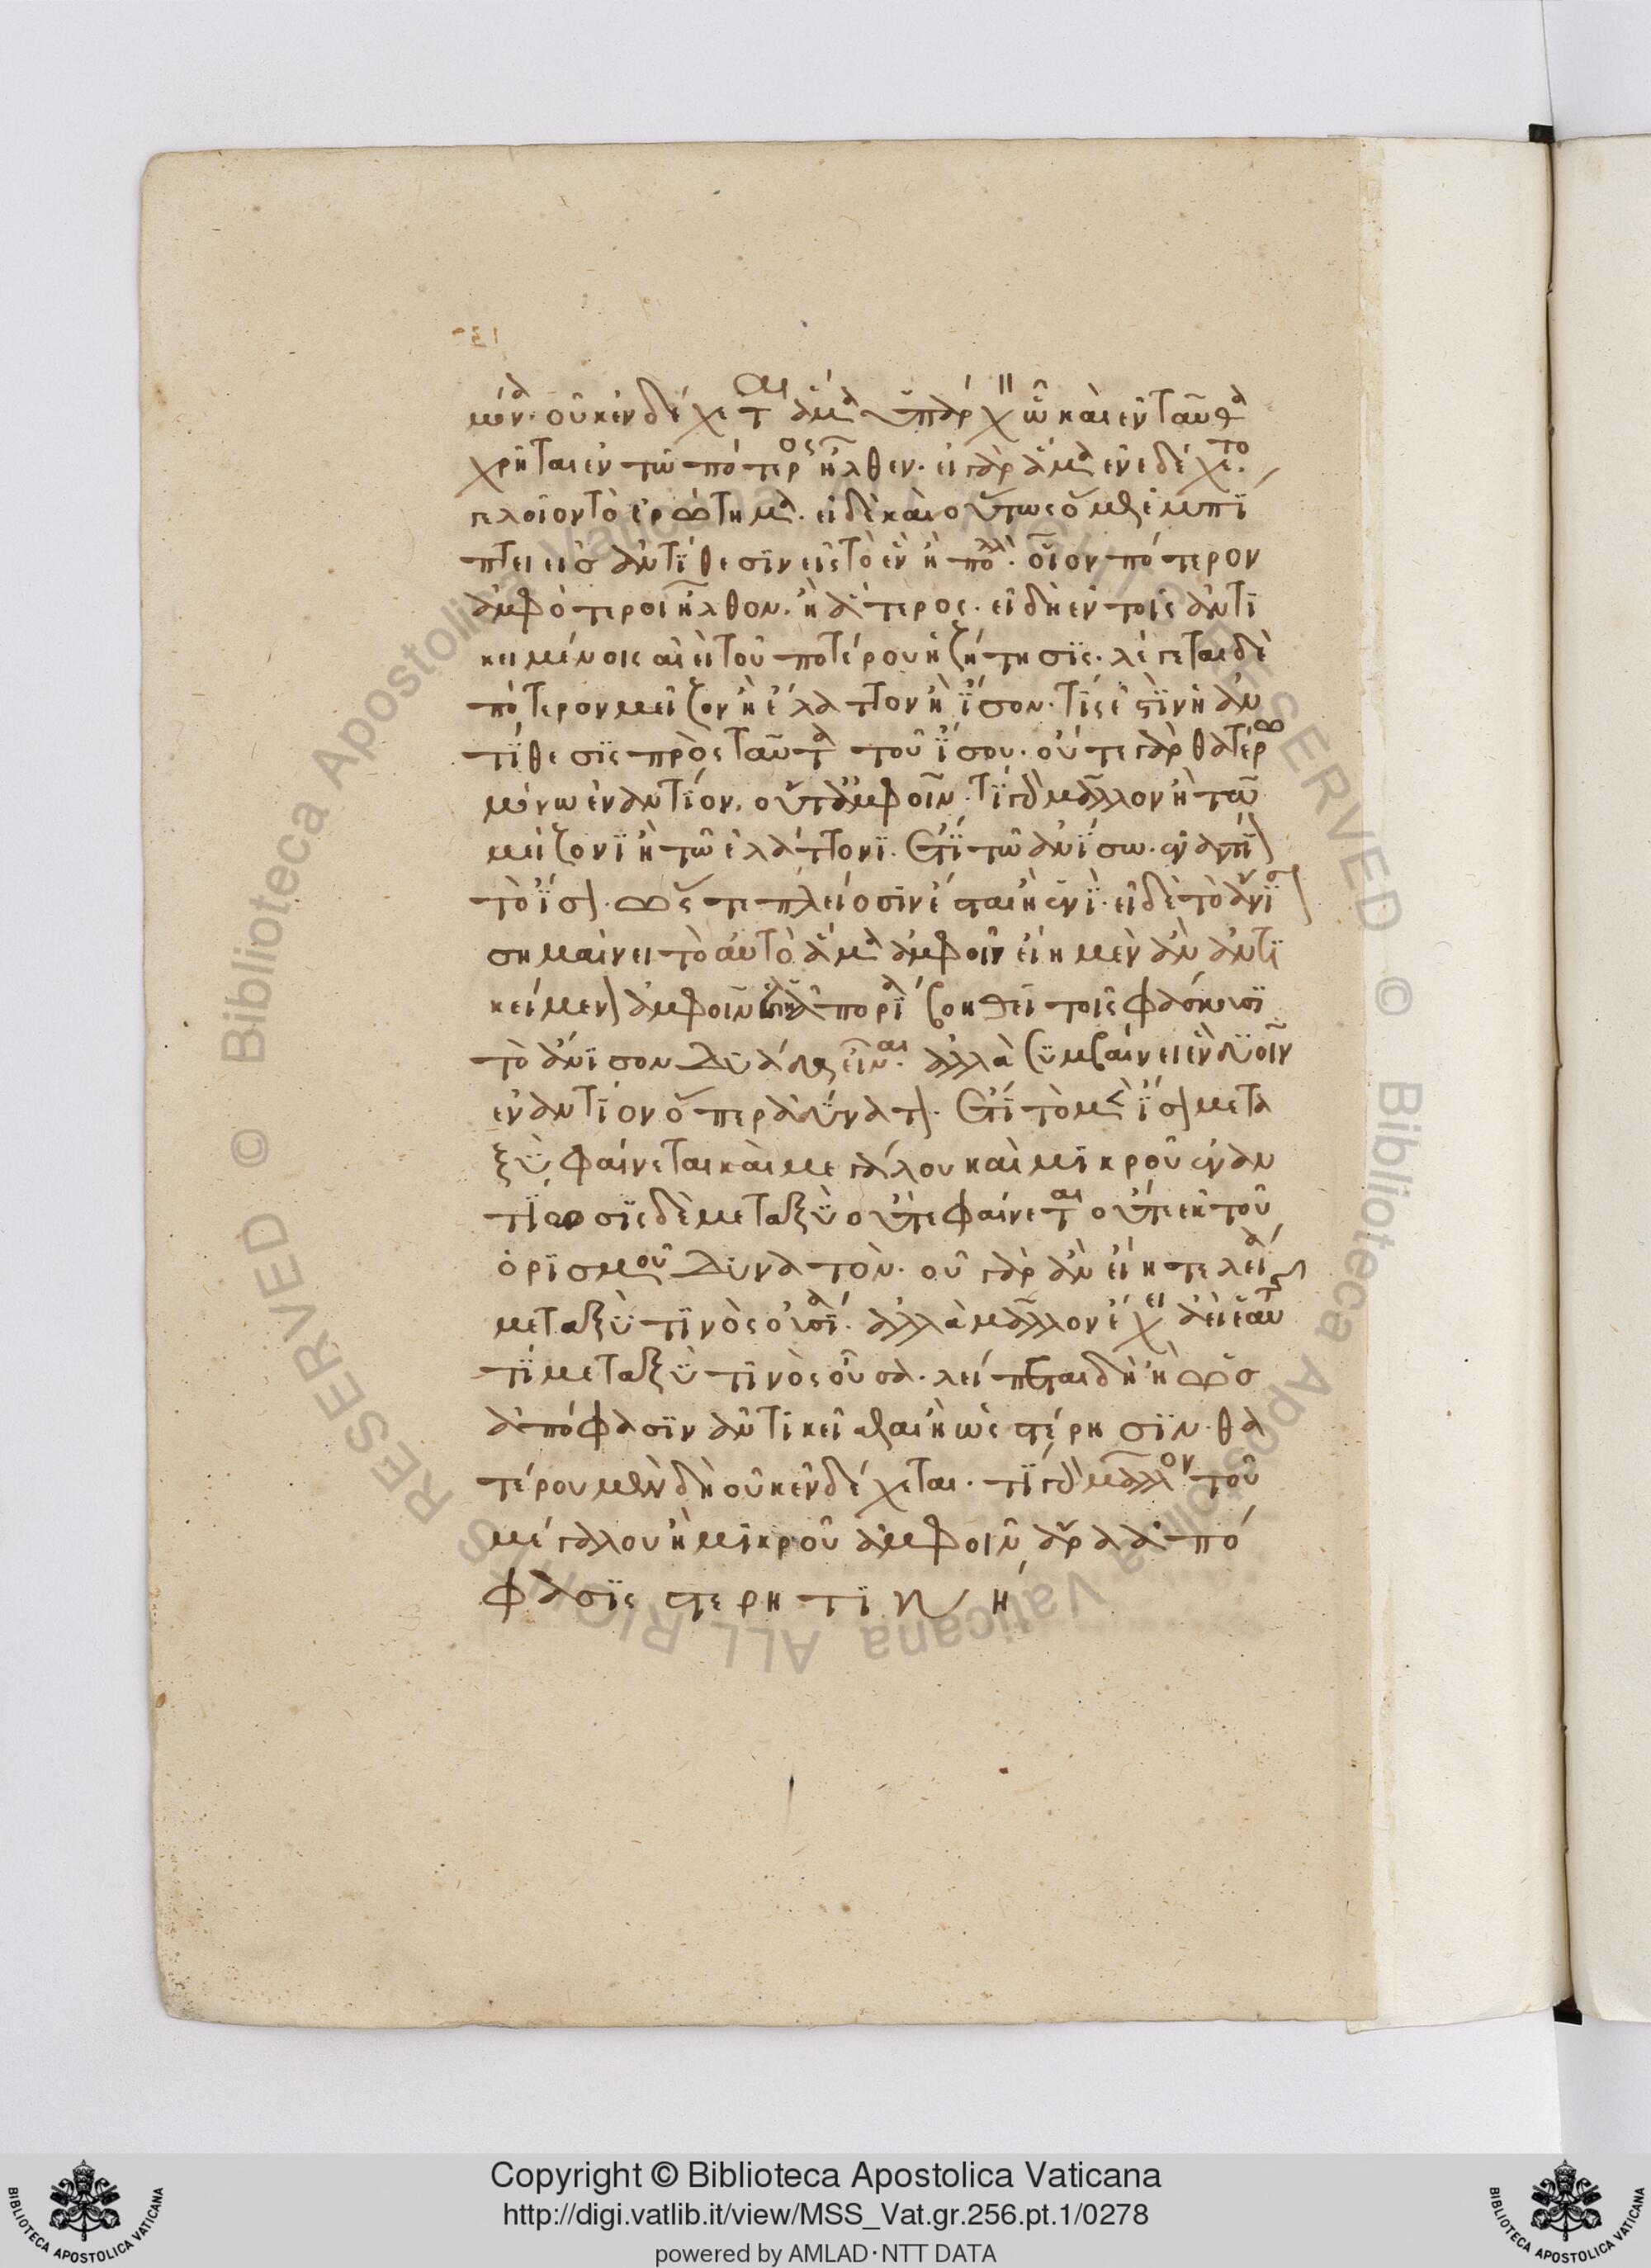 μόνα. οὐκ ἐνδέχεται ἅμα ὑπάρχειν ὧ καὶ ἐνταῦθα
χρῆται ἐν τῶ πότερος ἦλθεν. εἰ γὰρ ἅμα ἐνεδέχετο.
γελοῖον τὸ ἐρώτημα. εἰ δὲ καὶ οὕτως ὁμοίως ἐμπί
πτει εἰς ἀντίθεσιν εἰς τὸ ἓν ἢ πολλά. οἷον πότερον
ἀμφότεροι ἦλθον. ἢ ἅτερος. εἰ δὴ ἐν τοῖς ἀντι
κειμένοις αἰεὶ τοῦ ποτέρου ἡ ζήτησις. λέγεται δὲ
πότερον μεῖζον ἢ ἔλαττον ἢ ἴσον. τίς ἐστὶν ἡ ἀν
τίθεσις πρὸς ταῦτα τοῦ ἴσου. οὔτε γὰρ θατέρω
μόνω ἐναντίον. οὔτ' ἀμφοῖν. τί γὰρ μᾶλλον ἢ τῶ
μείζονι ἢ τῶ ἐλάττονι. ἔτι τῶ ἀνίσω ἐναντίον
τὸ ἴσον. ὥστε πλείοσιν ἔσται ἢ ἑνί. εἰ δὲ τὸ ἄνισον
σημαίνει τὸ αὐτὸ ἅμα ἀμφοῖν εἴη μὲν ἂν ἀντι
κείμενον ἀμφοῖν ἡ ἀπορία βοηθεῖ τοῖς φάσκουσι
τὸ ἄνισον δυάδα εἶναι. ἀλλὰ συμβαίνει ἓν δυοῖν
ἐναντίον ὅπερ ἀδύνατον. ἔτι τὸ μὲν ἴσον μετα
ξὺ φαίνεται καὶ μεγάλου καὶ μικροῦ ἐναν
τίωσις δὲ μεταξὺ οὔτε φαίνεται οὔτε ἐκ τοῦ
ὁρισμοῦ δυνατόν. οὐ γὰρ ἂν εἴη τελεία
μεταξύ τινὸς οὖσα. ἀλλὰ μᾶλλον ἔχει ἀεὶ ἑαυτῆς
τὶ μεταξύ τινὸς οὖσα. λείπεται δὴ ἢ ὡς
ἀπόφασιν ἀντικεῖσθαι ἢ ὡς στέρησιν. θα
τέρου μὲν δὴ οὐκ ἐνδέχεται. τί γὰρ μᾶλλον τοῦ
μεγάλου ἢ μικροῦ ἀμφοῖν ἄρα ἀπό
φασις στερητικὴ